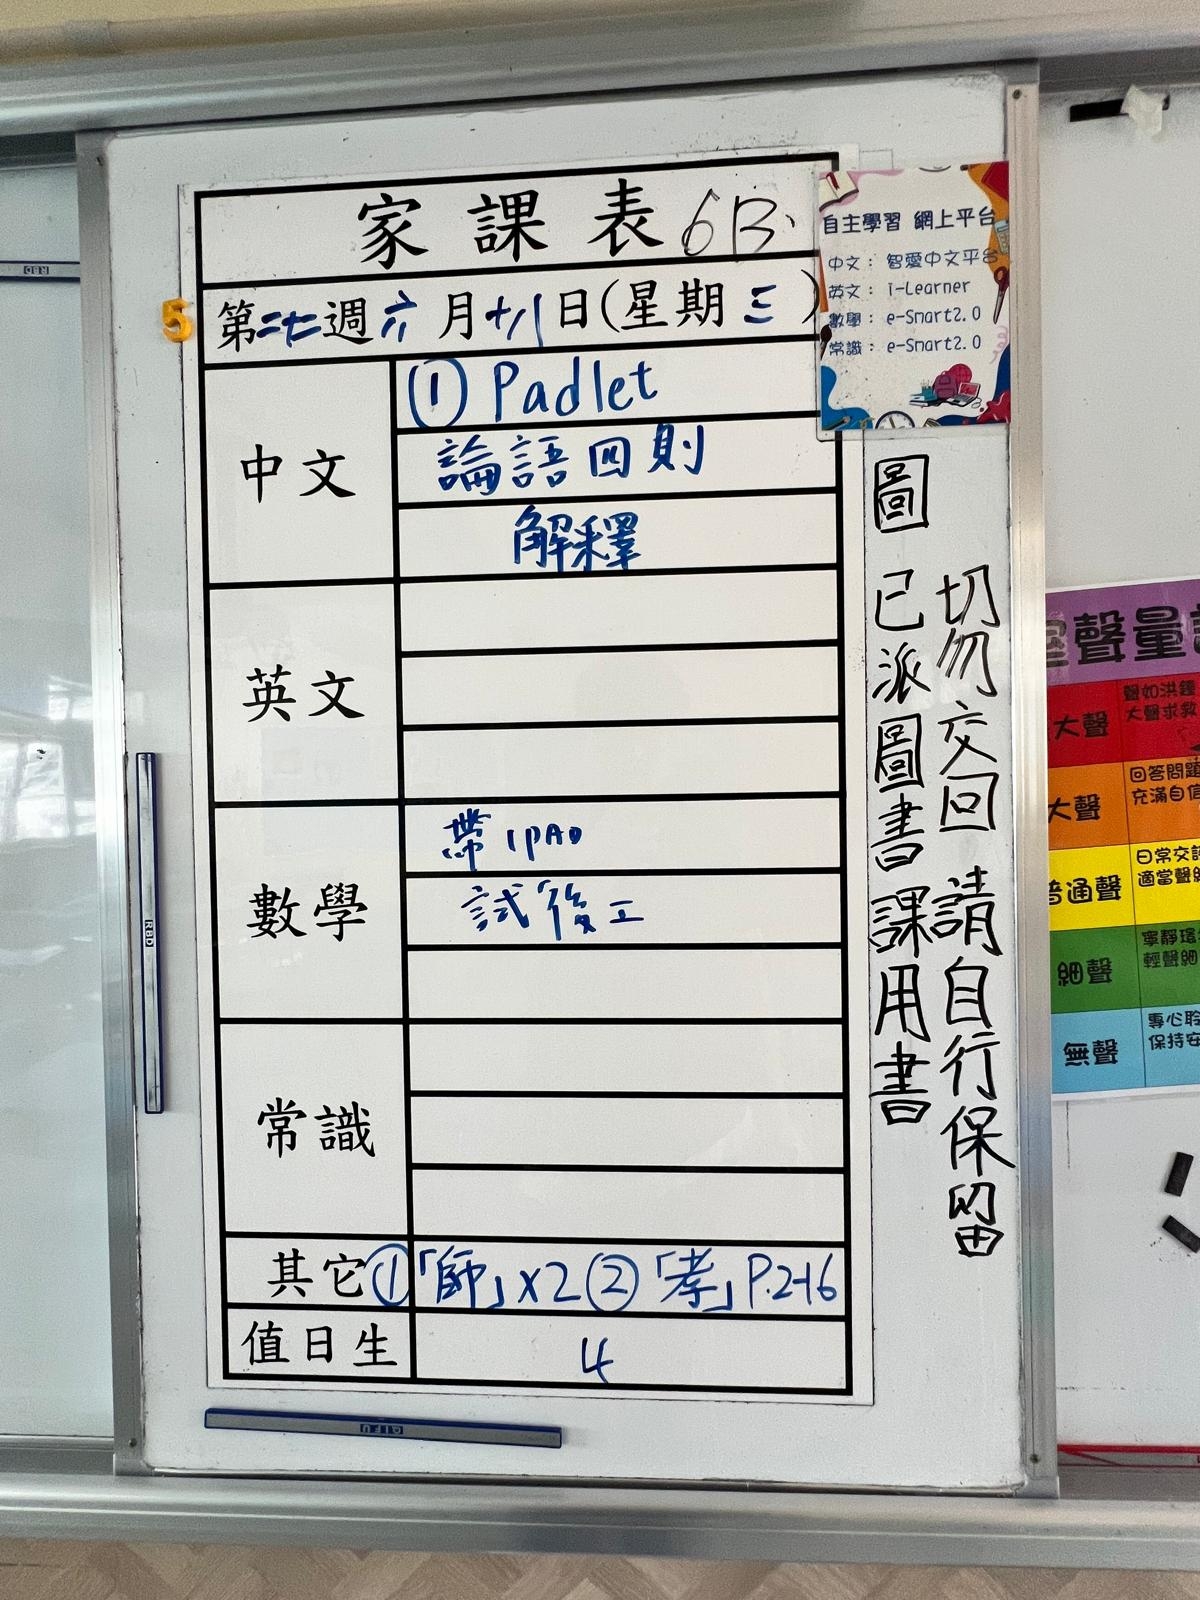 家課表 6B
5
第二七週六月十八日(星期三)
自主學習 網上平台
中文： 智愛中文平台
英文： i-Learner
數學： e-Smart2.0
常識： e-Smart2.0
中文
① Padlet
論語四則
解釋
英文
數學
帶 IPAD
試後工
常識
其它 ①「師」x2 ②「孝」P.2-16
值日生 4
圖
已派圖書課用書
切勿交回 請自行保留
聲量
大聲
聲如洪鐘
大聲求救
大聲
回答問題
充滿自信
普通聲
日常交談
適當聲
細聲
寧靜環
輕聲細
無聲
專心聆
保持安
RBD
RBD
QIFU